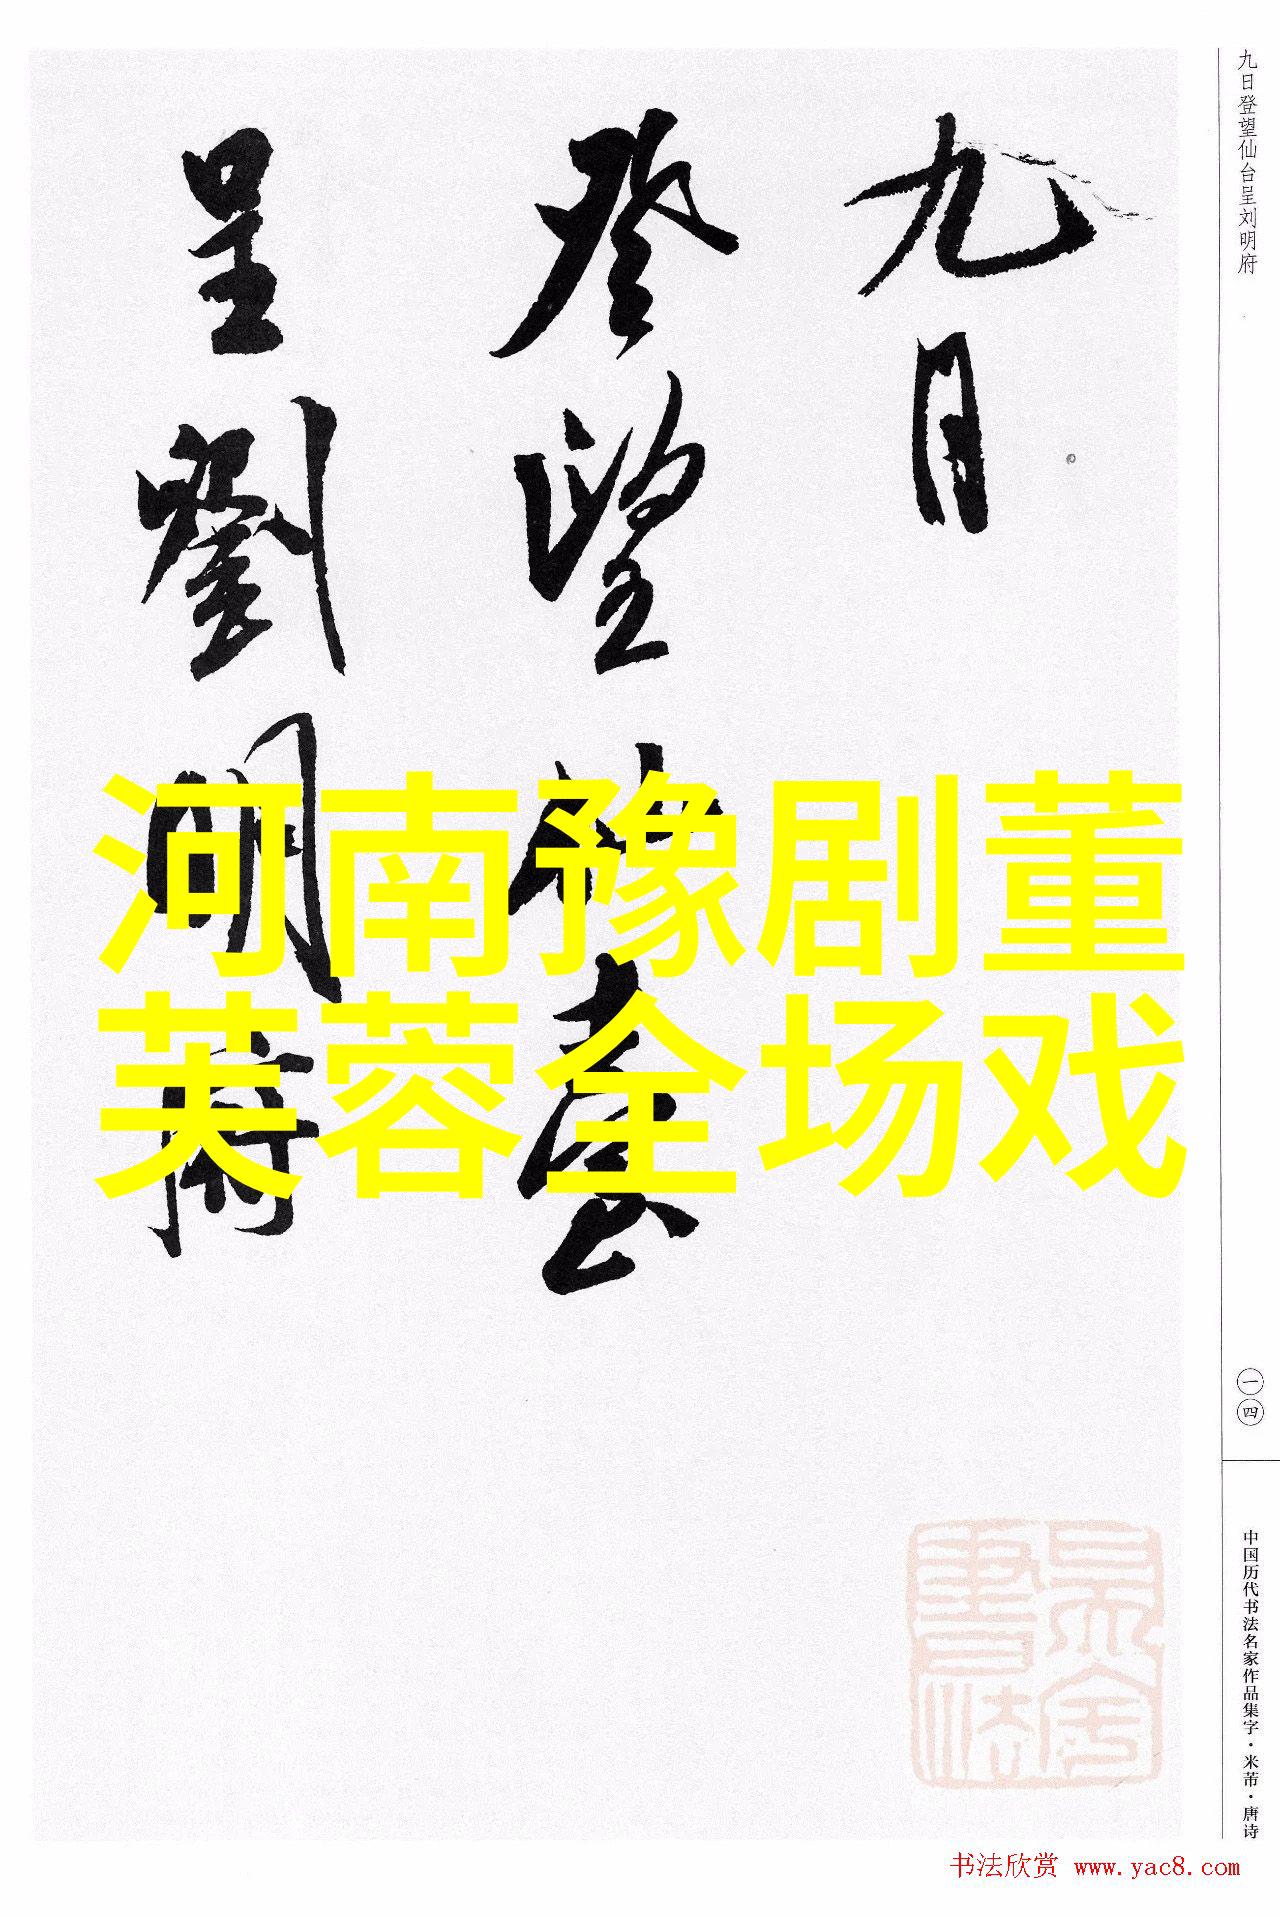 九日登望仙台呈刘明府
九日
登望仙臺
呈劉明府
河南豫剧董
芙蓉全场戏
一四
中国历代书法名家作品集字·米芾·唐诗
书法欣赏 www.yac8.com